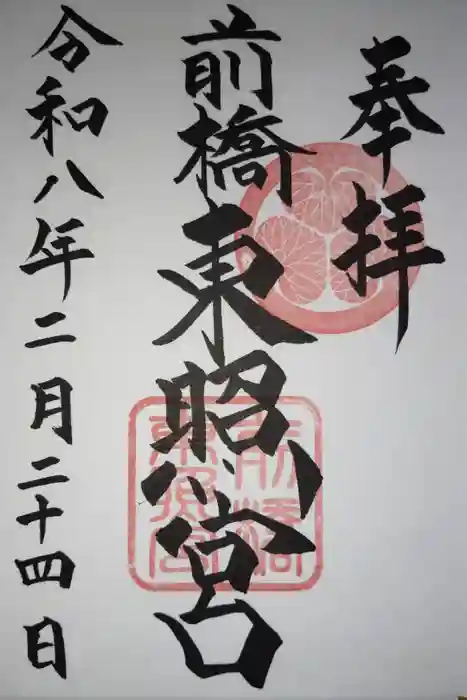 奉拝
前橋東照宮
令和八年二月二十四日
前橋東照宮